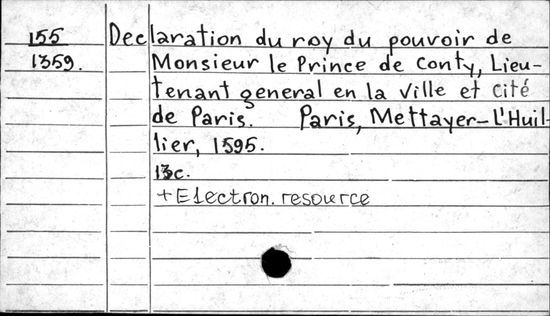 155 Declaration du roy du pouvoir de
1359. Monsieur le Prince de Conty, Lieu-
tenant general en la ville et cité
de Paris. Paris, Mettayer-L'Huil-
lier, 1595.
13c.
+Electron. resource